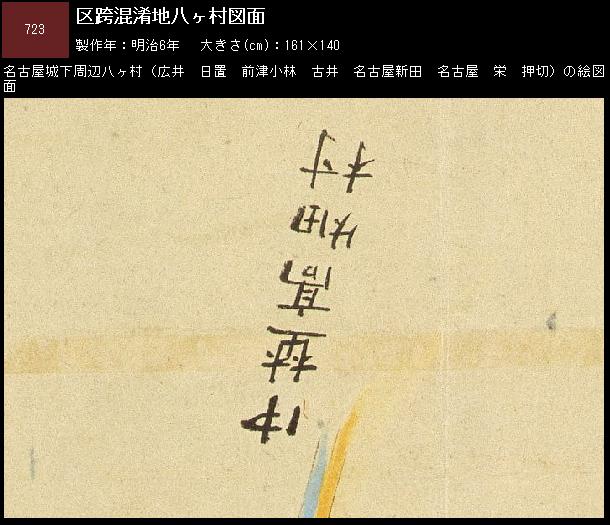 723
区跨混淆地八ヶ村図面
製作年：明治6年　大きさ(cm)：161×140
名古屋城下周辺八ヶ村（広井　日置　前津小林　古井　名古屋新田　名古屋　栄　押切）の絵図
面
高畑村